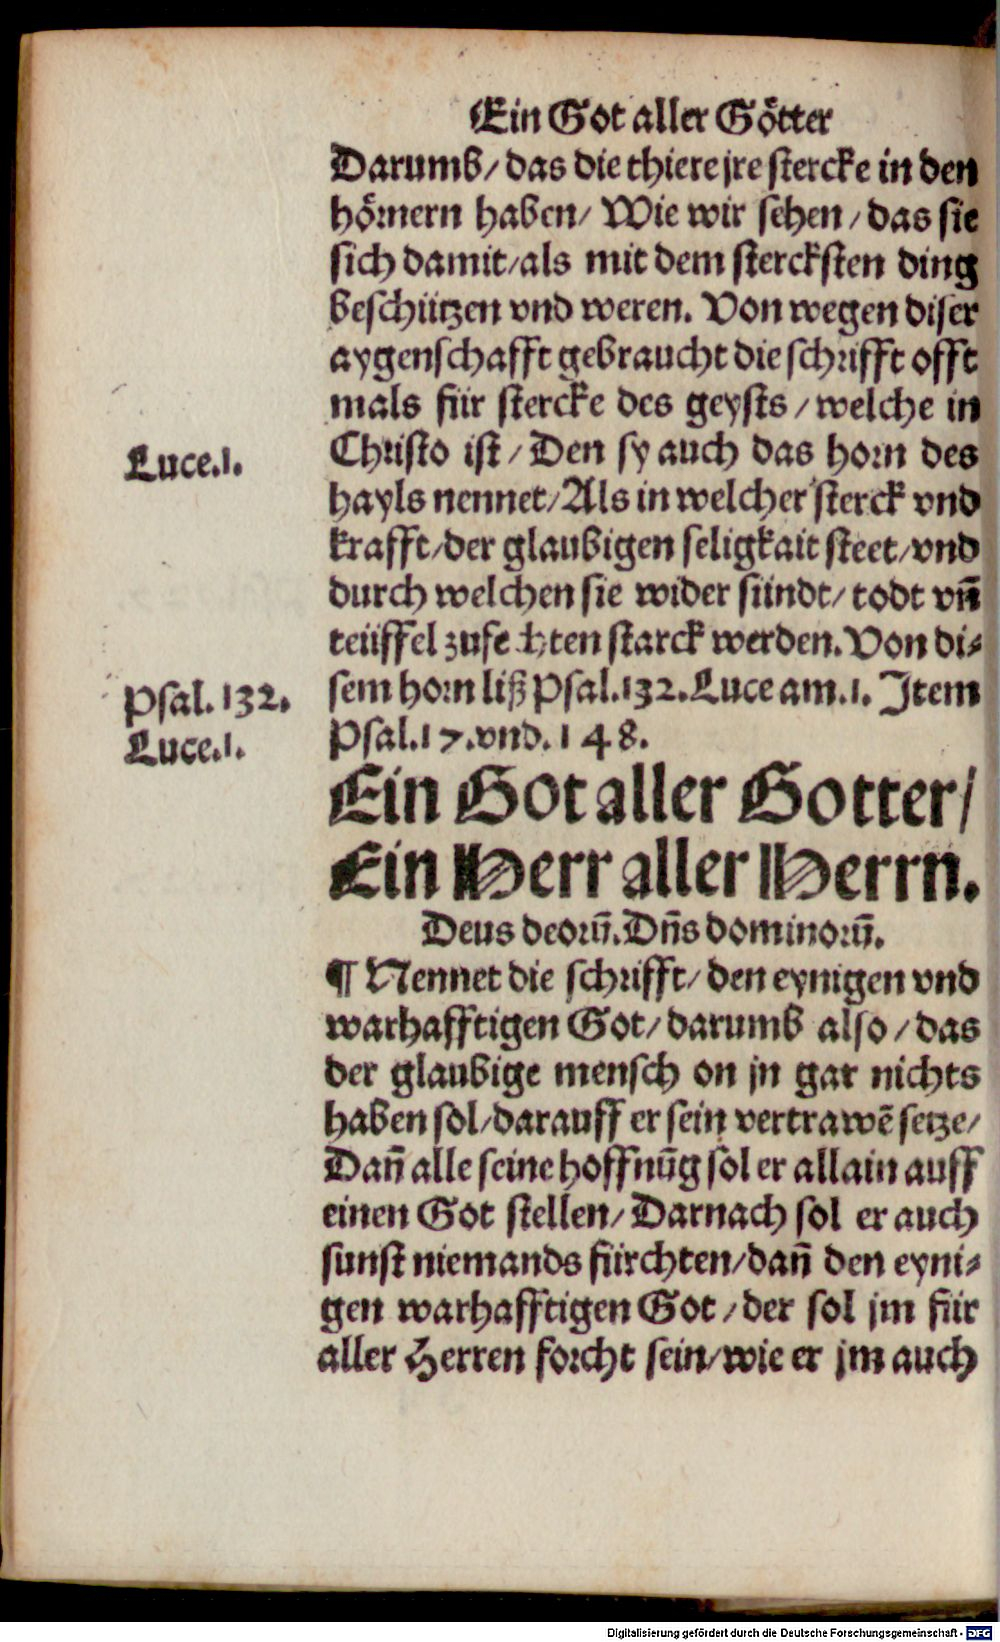 Ein Got aller Goͤtter
Darumb/ das die thiere jre stercke in den
hoͤrnern haben/ Wie wir sehen/ das sie
sich damit/ als mit dem stercksten ding
beschützen vnd weren. Von wegen diser
aygenschafft gebraucht die schrifft offt
mals für stercke des geysts/ welche in
Luce.1.
Christo ist/ Den sy auch das horn des
hayls nennet/ Als in welcher sterck vnd
krafft/ der glaubigen seligkait steet/ vnd
durch welchen sie wider sündt/ todt vn̄
teüffel zufechten starck werden. Von di⸗
Psal. 132.
sem horn liß Psal.132. Luce am.1. Item
Luce.1.
Psal.17.vnd.148.
Ein Got aller Gotter/
Ein Herr aller Herrn.
Deus deorū. Dn̄s dominorū.
¶ Nennet die schrifft/ den eynigen vnd
warhafftigen Got/ darumb also/ das
der glaubige mensch on jn gar nichts
haben sol/ darauff er sein vertrawē setze/
Dan̄ alle seine hoffnūg sol er allain auff
einen Got stellen/ Darnach sol er auch
sunst niemands fürchten/ dan̄ den eyni⸗
gen warhafftigen Got/ der sol jm für
aller Herren forcht sein/ wie er jm auch
Digitalisierung gefördert durch die Deutsche Forschungsgemeinschaft - DFG